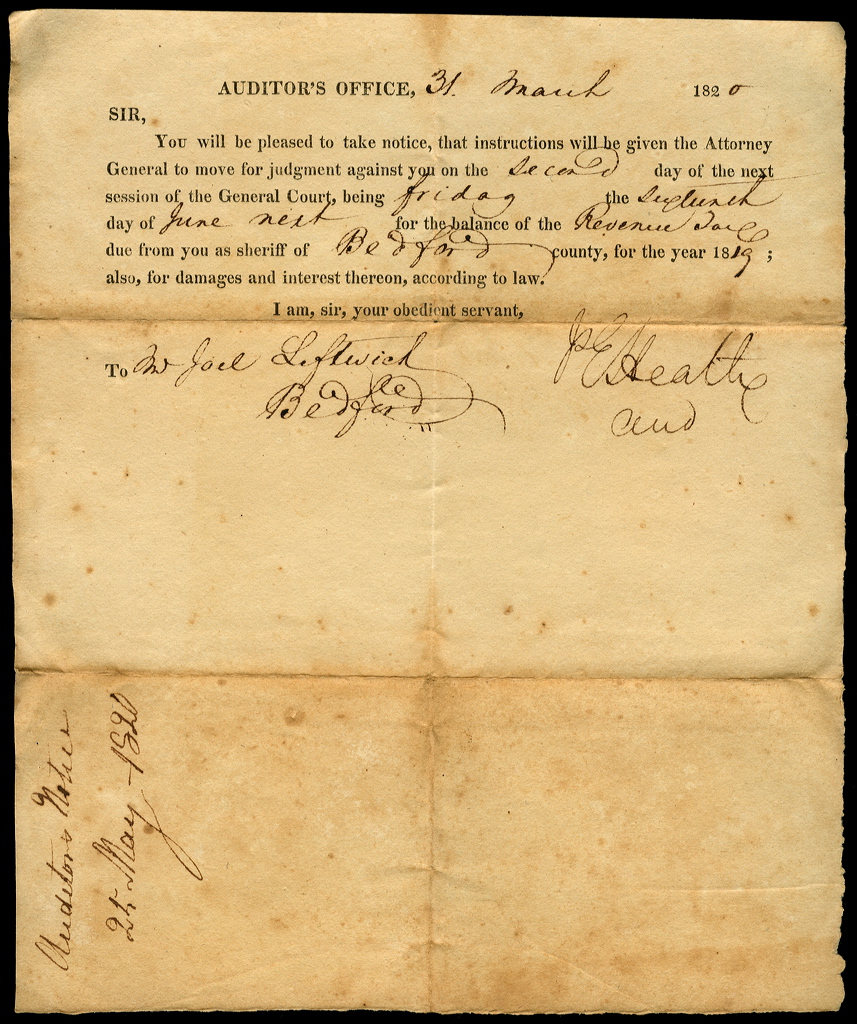 AUDITOR'S OFFICE, 31. March 1820
SIR,
YOU will be pleased to take notice, that instructions will be given the Attorney
General to move for judgment against you on the second day of the next
session of the General Court, being friday the sixteenth
day of June next for the balance of the Revenue Tax
due from you as sheriff of Bedford county, for the year 1819;
also, for damages and interest thereon, according to law.
I am, sir, your obedient servant,
To Mr Joel Leftwich
Bedford
Heath
aud
Auditors Notice
25 May 1820